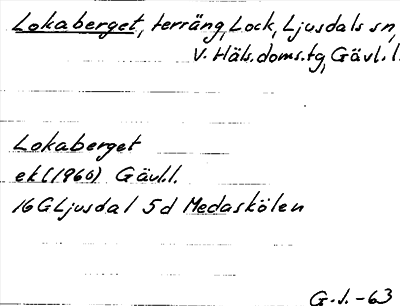 Lokaberget, terräng, Lock, Ljusdals sn,
V. Häls. doms.tg, Gävl. l.
Lokaberget
ek (1960) Gävl.l.
16 G Ljusdal 5d Medaskölen
G.J. -63